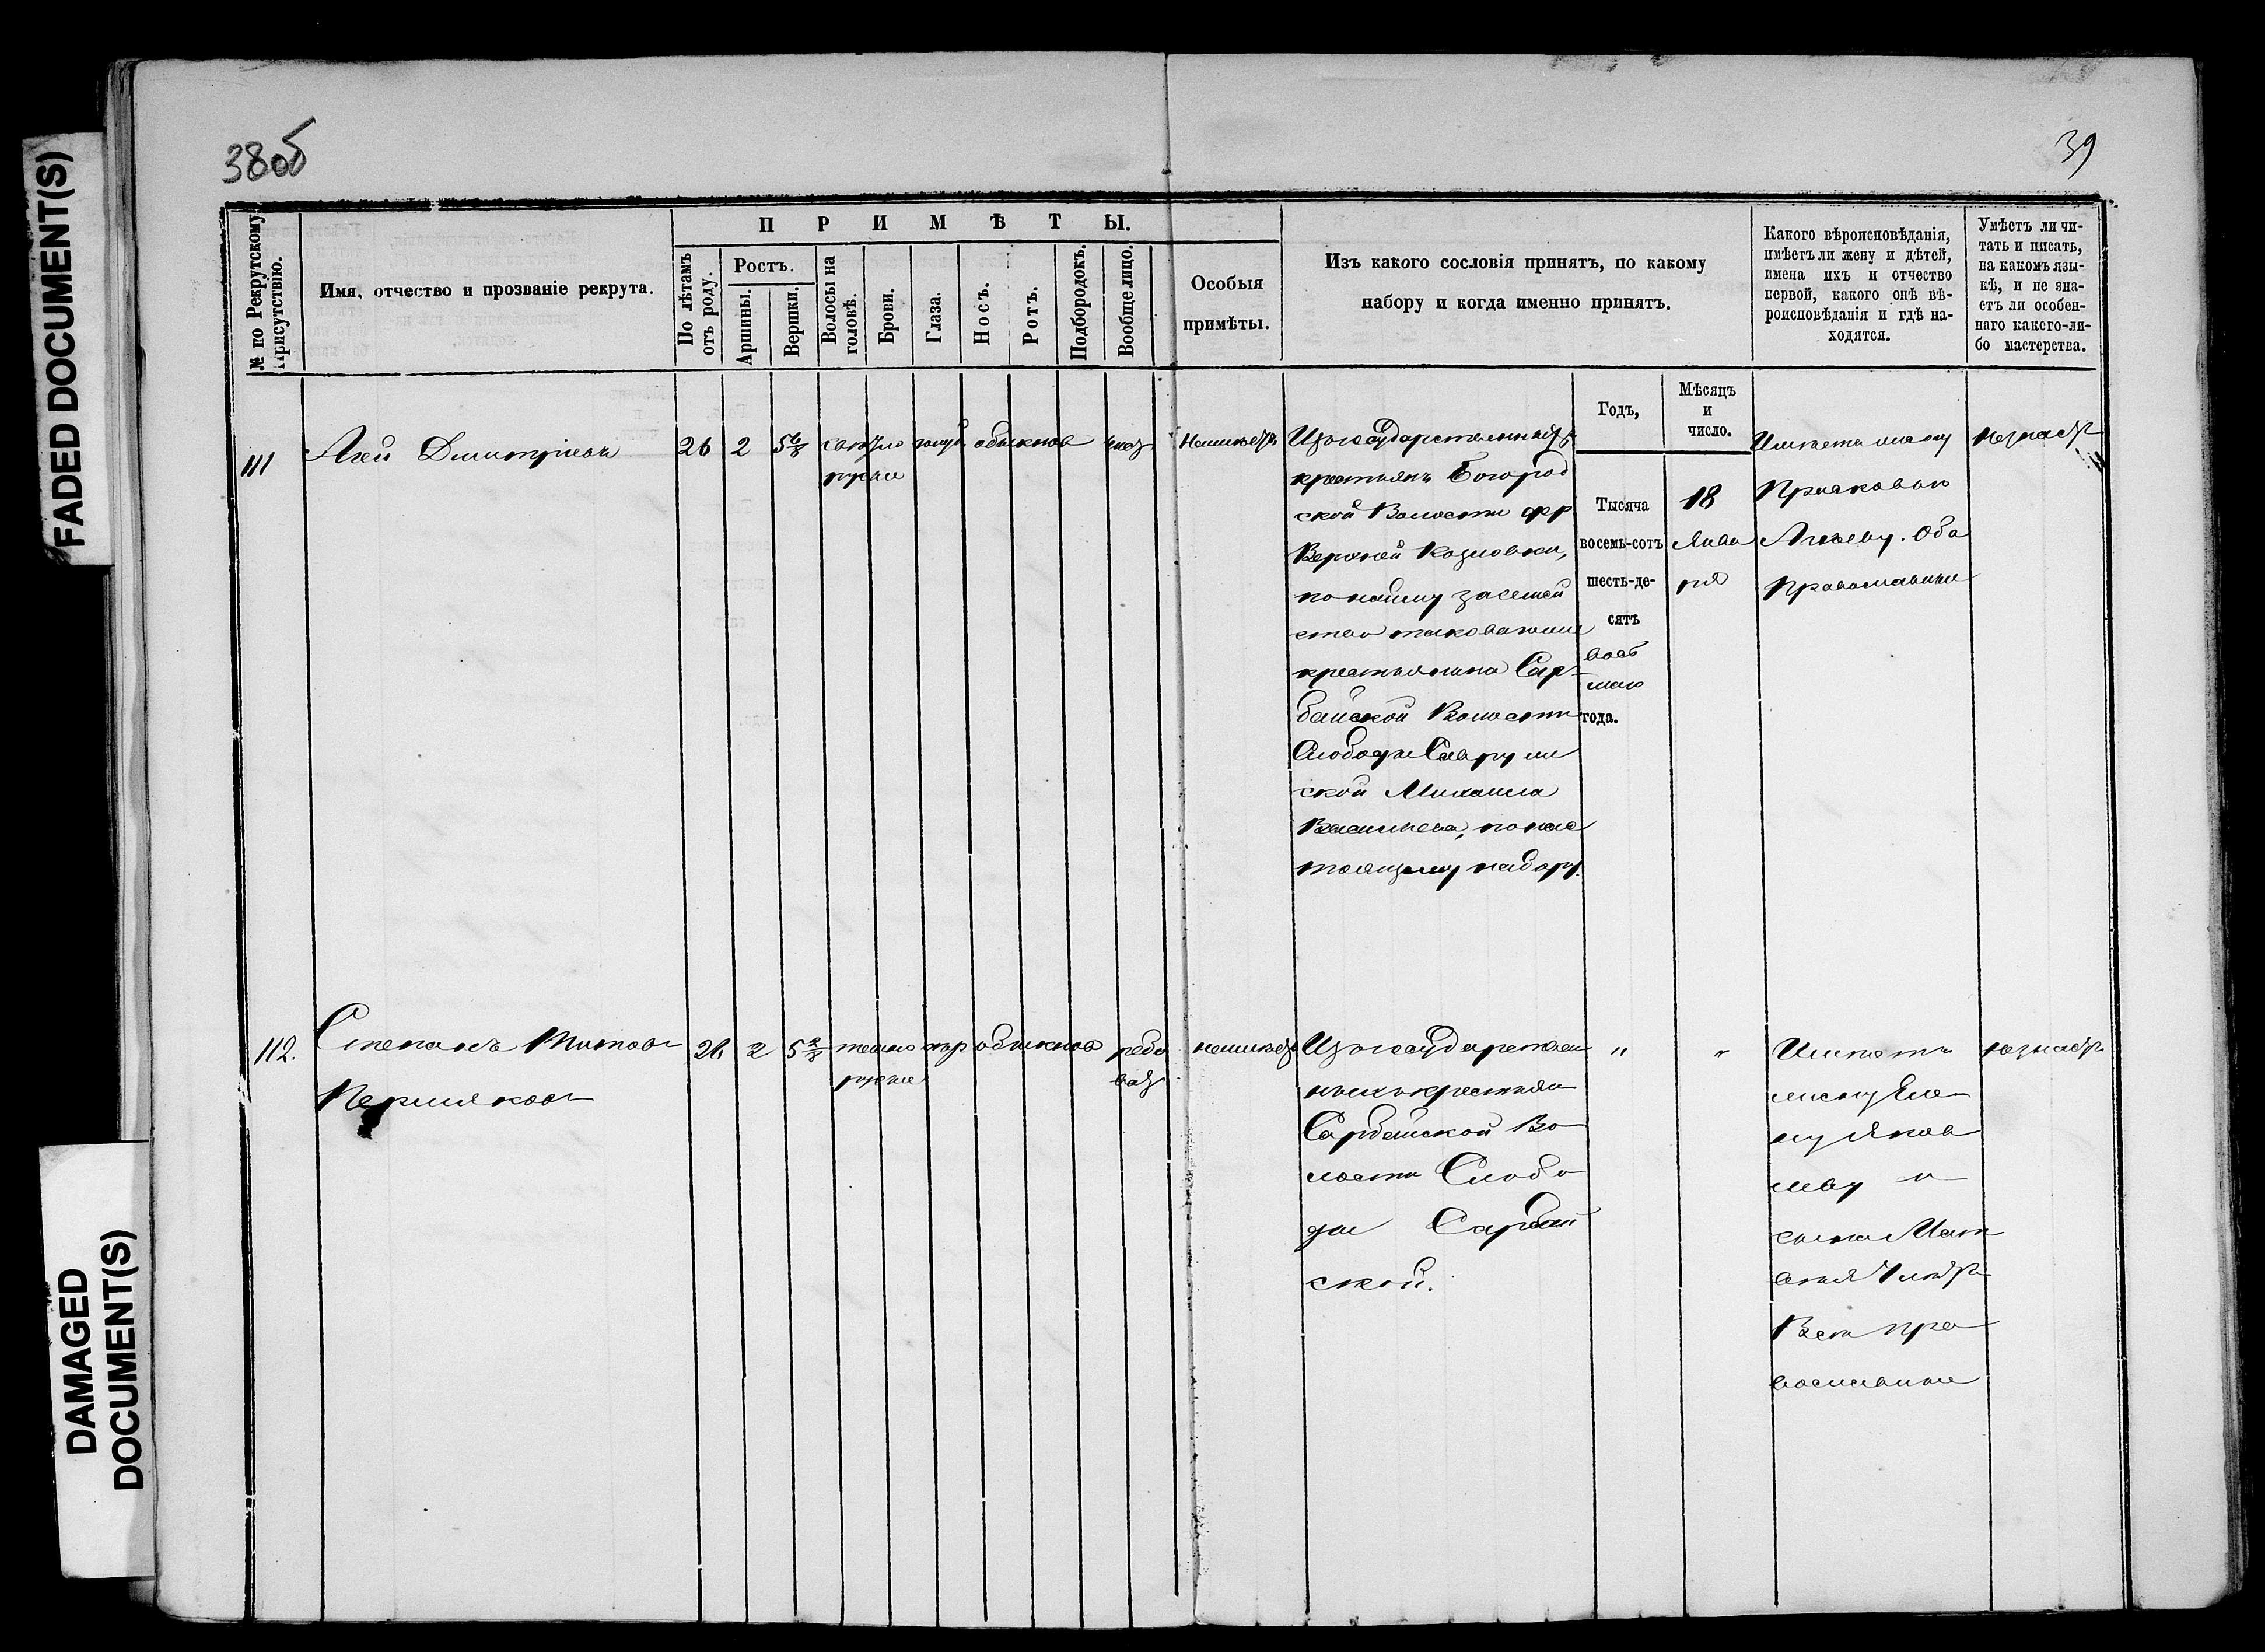 FADED DOCUMENT(S)
DAMAGED
DOCUMENT(S)
38об
39
№ по Рекрутскому
Присутствію.
Имя, отчество и прозваніе рекрута.
ПРИМѢТЫ.
По лѣтамъ
отъ роду.
Ростъ.
Аршины.
Вершки.
Волосы на
головѣ.
Брови.
Глаза.
Носъ.
Ротъ.
Подбородокъ.
Вообще лицо.
Особыя
примѣты.
Изъ какого сословія принятъ, по какому
набору и когда именно принятъ.
Какого вѣроисповѣданія,
имѣетъ ли жену и дѣтей,
имена ихъ и отчество
первой, какого онѣ вѣ-
роисповѣданія и гдѣ на-
ходятся.
Умѣетъ ли чи-
тать и писать,
на какомъ язы-
кѣ, и не зна-
етъ ли особен-
наго какого-ли-
бо мастерства.
Годъ,
Мѣсяцъ
и
число.
111
Димитріевъ
26
2
5 6/8
свѣтло
русые
обыкнов
чист
неимѣетъ
Изъ государственныхъ
крестьянъ Богород
ской Волости
Верхней Козловки,
по найму за семей
ство таковаго же
крестьянина Сар-
байской Волости
Слободы
ской Михаила
Васильева, по нас
тоящему набору.
Тысяча
восемь-сотъ
шесть-де-
сятъ
вось
маго
года.
18
Янва
ря
Имѣетъ жену
Прасковью
Оба
Православные
незнаетъ
112.
Степанъ Титовъ
Пермяковъ
26
2
5 2/8
темно
русые
сѣр
обыкнов
рябо
ват
неимѣетъ
Изъ государствен
ныхъ крестьянъ
Сарбайской Во
лости Слобо
ды Сарбай
ской.
"
"
Имѣетъ
жену Еле
ну Яков
леву и
сына Мат
вѣя
Всѣ пра
вославные
незнаетъ